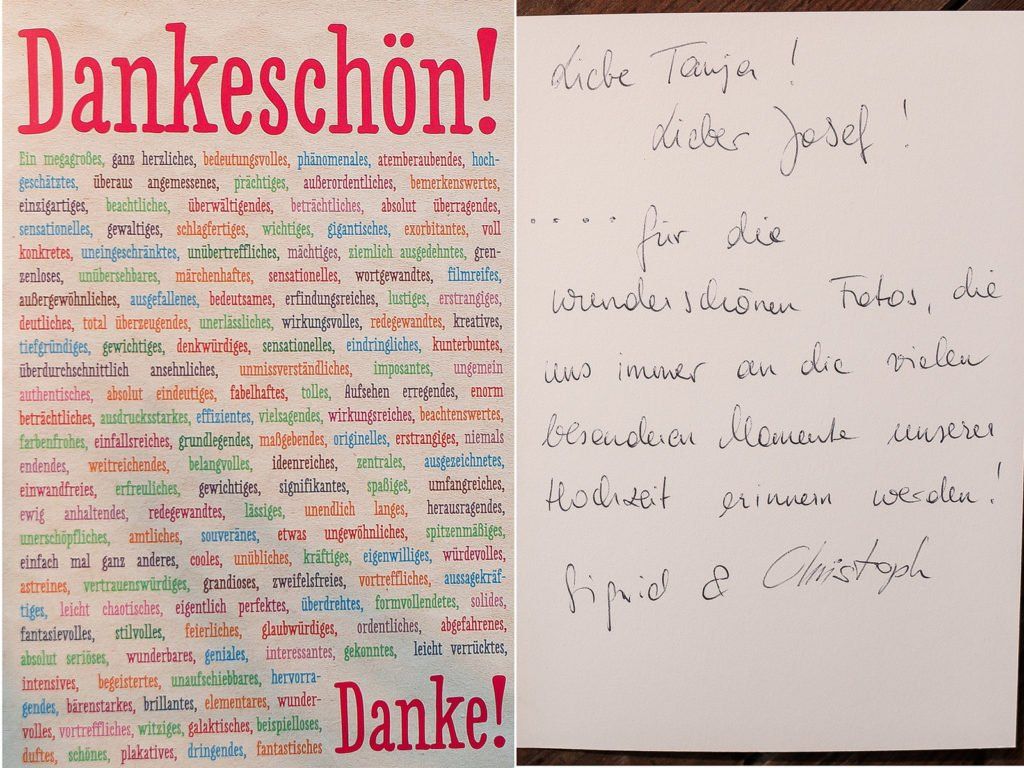 Dankeschön!
Ein megagroßes, ganz herzliches, bedeutungsvolles, phänomenales, atemberaubendes, hoch-
geschätztes, überaus angemessenes, prächtiges, außerordentliches, bemerkenswertes,
einzigartiges, beachtliches, überwältigendes, beträchtliches, absolut überragendes,
sensationelles, gewaltiges, schlagfertiges, wichtiges, gigantisches, exorbitantes, voll
konkretes, uneingeschränktes, unübertreffliches, mächtiges, ziemlich ausgedehntes, gren-
zenloses, unübersehbares, märchenhaftes, sensationelles, wortgewandtes, filmreifes,
außergewöhnliches, ausgefallenes, bedeutsames, erfindungsreiches, lustiges, erstrangiges,
deutliches, total überzeugendes, unerlässliches, wirkungsvolles, redegewandtes, kreatives,
tiefgründiges, gewichtiges, denkwürdiges, sensationelles, eindringliches, kunterbuntes,
überdurchschnittlich ansehnliches, unmissverständliches, imposantes, ungemein
authentisches, absolut eindeutiges, fabelhaftes, tolles, Aufsehen erregendes, enorm
beträchtliches, ausdrucksstarkes, effizientes, vielsagendes, wirkungsreiches, beachtenswertes,
farbenfrohes, einfallsreiches, grundlegendes, maßgebendes, originelles, erstrangiges, niemals
endendes, weitreichendes, belangvolles, ideenreiches, zentrales, ausgezeichnetes,
einwandfreies, erfreuliches, gewichtiges, signifikantes, spaßiges, umfangreiches,
ewig anhaltendes, redegewandtes, lässiges, unendlich langes, herausragendes,
unerschöpfliches, amtliches, souveränes, etwas ungewöhnliches, spitzenmäßiges,
einfach mal ganz anderes, cooles, unübliches, kräftiges, eigenwilliges, würdevolles,
astreines, vertrauenswürdiges, grandioses, zweifelsfreies, vortreffliches, aussagekräf-
tiges, leicht chaotisches, eigentlich perfektes, überdrehtes, formvollendetes, solides,
fantasievolles, stilvolles, feierliches, glaubwürdiges, ordentliches, abgefahrenes,
absolut seriöses, wunderbares, geniales, interessantes, gekonntes, leicht verrücktes,
intensives, begeistertes, unaufschiebbares, hervorra-
gendes, bärenstarkes, brillantes, elementares, wunder-
volles, vortreffliches, witziges, galaktisches, beispielloses,
duftes, schönes, plakatives, dringendes, fantastisches
Danke!
Liebe Tanja!
Lieber Josef!
.... für die
wunderschönen Fotos, die
uns immer an die vielen
besonderen Momente unserer
Hochzeit erinnern werden!
Sigrid & Christoph